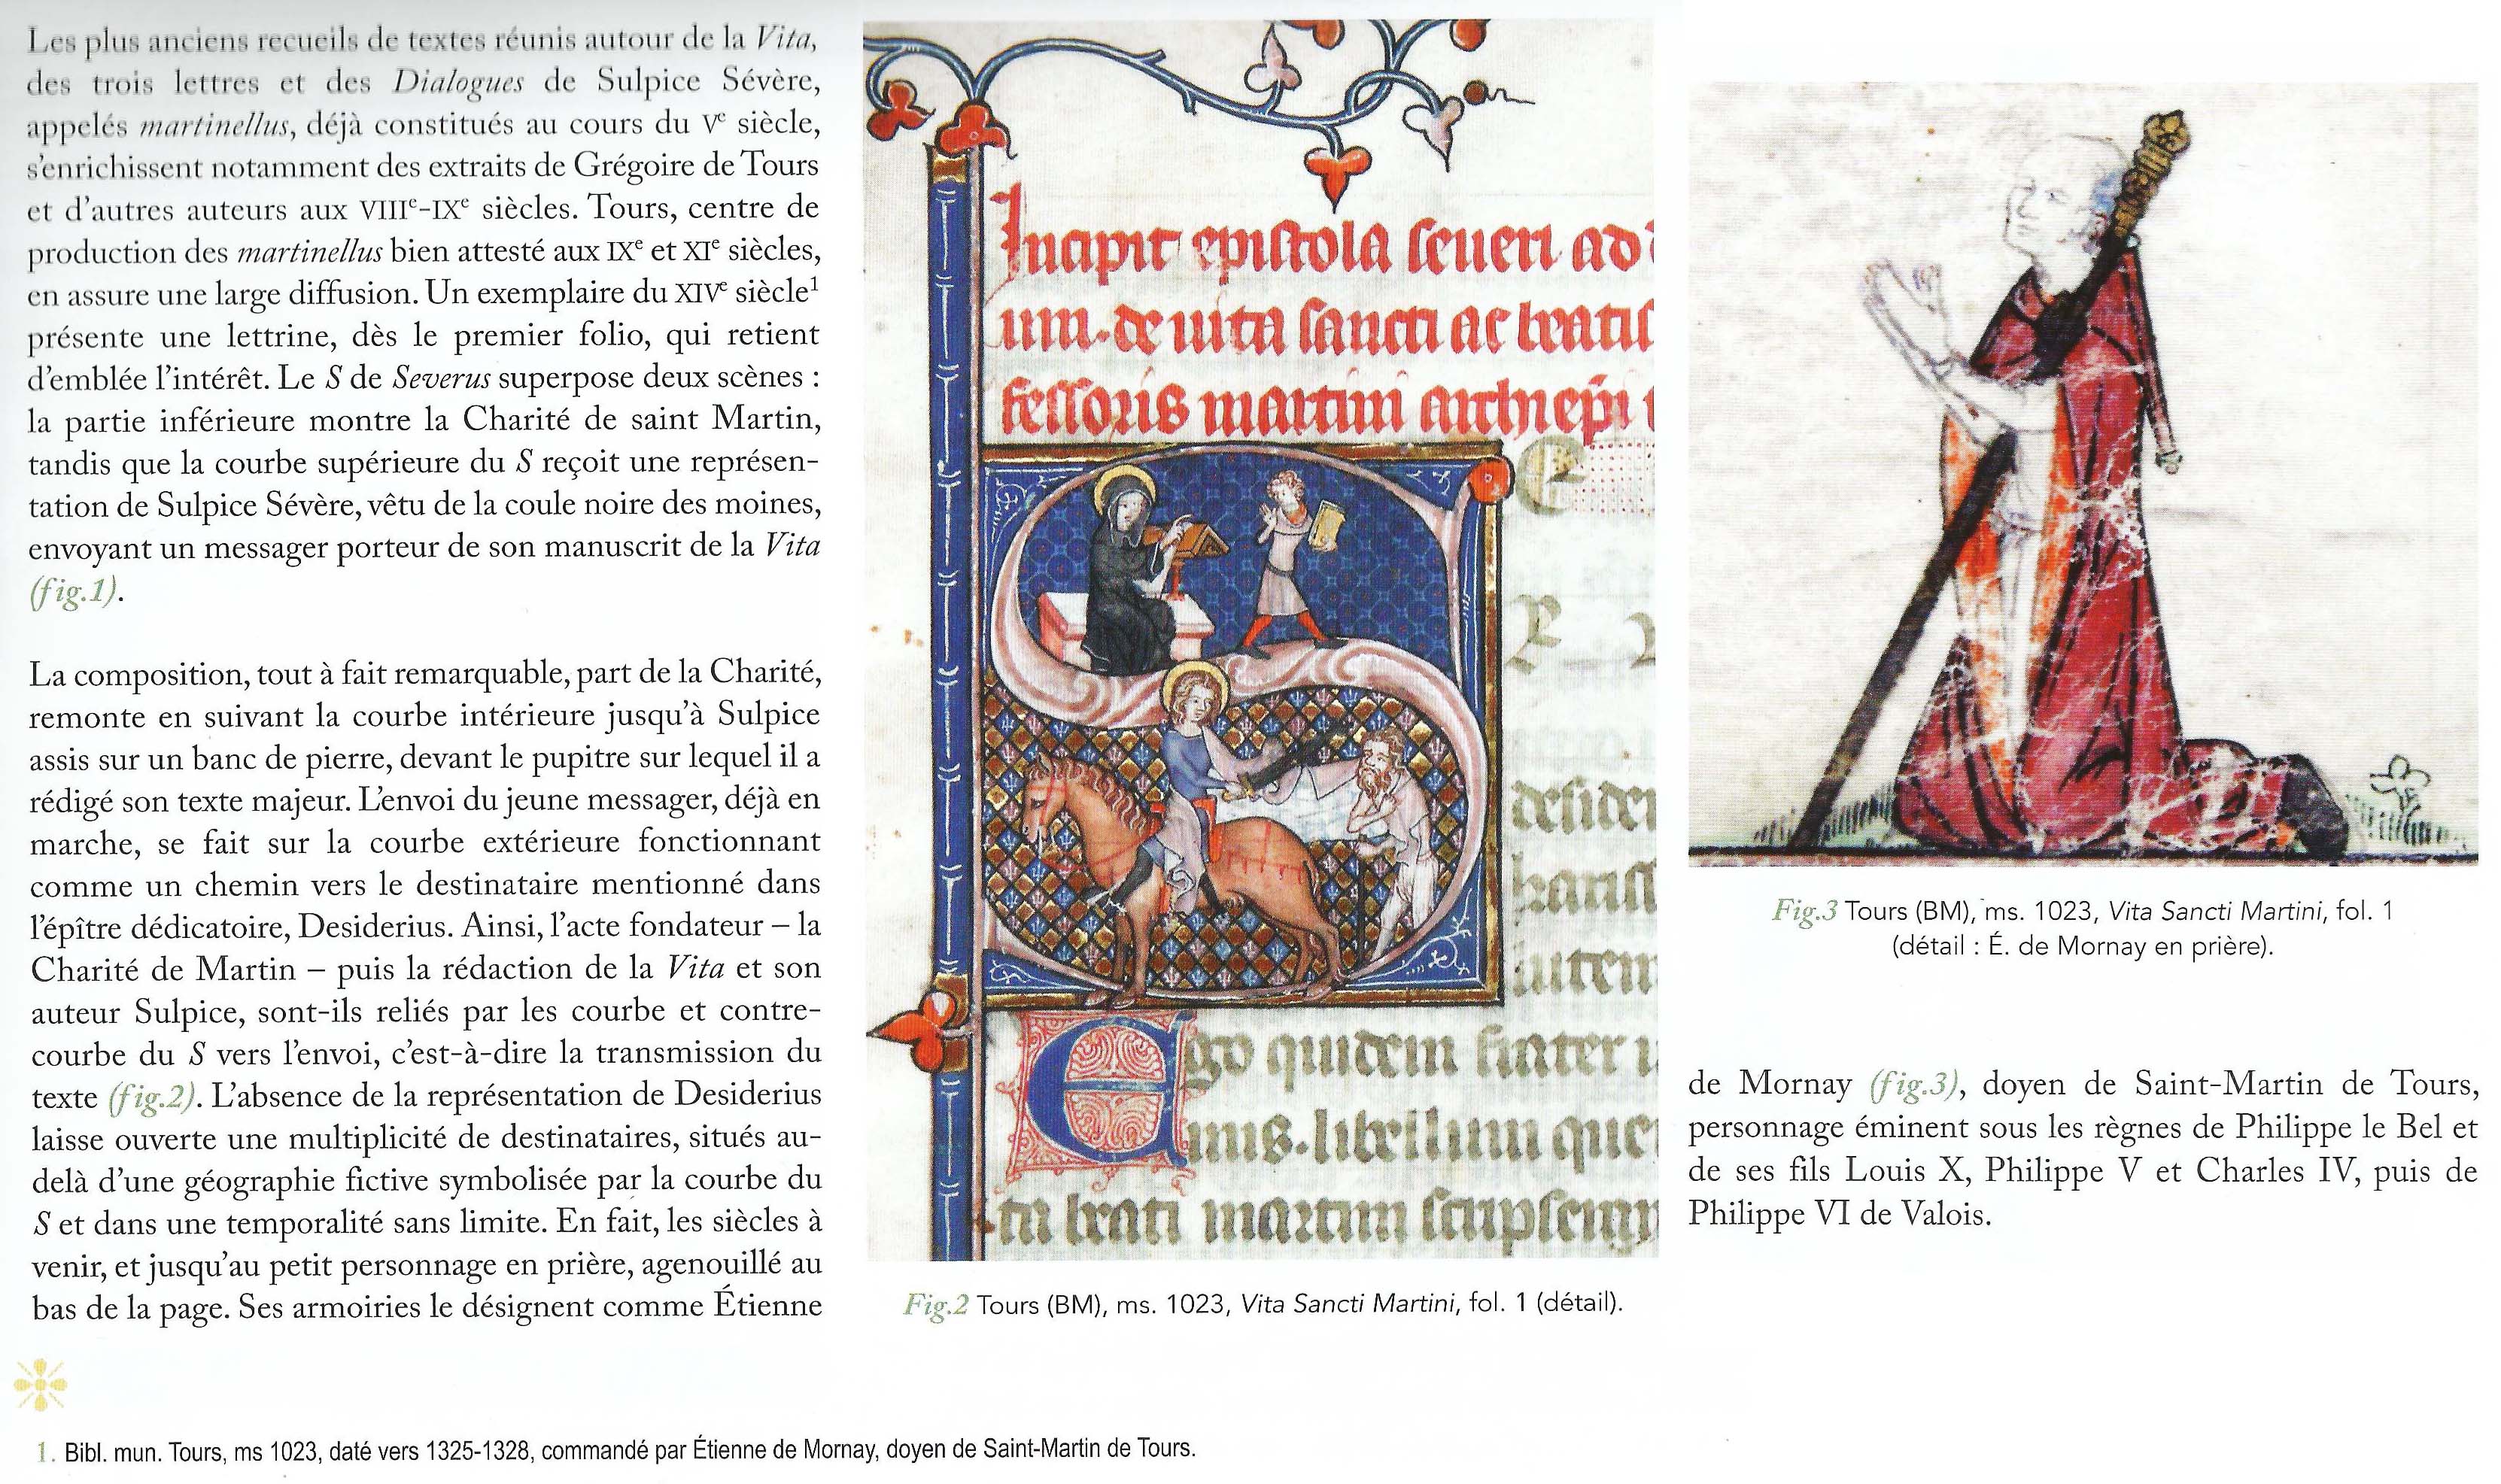 Les plus anciens recueils de textes réunis autour de la Vita,
des trois lettres et des Dialogues de Sulpice Sévère,
appelés martinellus, déjà constitués au cours du Ve siècle,
s'enrichissent notamment des extraits de Grégoire de Tours
et d'autres auteurs aux VIIIe-IXe siècles. Tours, centre de
production des martinellus bien attesté aux IXe et XIe siècles,
en assure une large diffusion. Un exemplaire du XIVe siècle1
présente une lettrine, dès le premier folio, qui retient
d'emblée l'intérêt. Le S de Severus superpose deux scènes :
la partie inférieure montre la Charité de saint Martin,
tandis que la courbe supérieure du S reçoit une représen-
tation de Sulpice Sévère, vêtu de la coule noire des moines,
envoyant un messager porteur de son manuscrit de la Vita
(fig.1).
La composition, tout à fait remarquable, part de la Charité,
remonte en suivant la courbe intérieure jusqu'à Sulpice
assis sur un banc de pierre, devant le pupitre sur lequel il a
rédigé son texte majeur. L'envoi du jeune messager, déjà en
marche, se fait sur la courbe extérieure fonctionnant
comme un chemin vers le destinataire mentionné dans
l'épître dédicatoire, Desiderius. Ainsi, l'acte fondateur – la
Charité de Martin – puis la rédaction de la Vita et son
auteur Sulpice, sont-ils reliés par les courbe et contre-
courbe du S vers l'envoi, c'est-à-dire la transmission du
texte (fig.2). L'absence de la représentation de Desiderius
laisse ouverte une multiplicité de destinataires, situés au-
delà d'une géographie fictive symbolisée par la courbe du
S et dans une temporalité sans limite. En fait, les siècles à
venir, et jusqu'au petit personnage en prière, agenouillé au
bas de la page. Ses armoiries le désignent comme Étienne
Incipit epistola seueri ad
um. de uita sancti ac beatis
fessoris martini archiepi
S
E
R
desider
kariss
autem
Ego quidem frater
unis. libellum que
ta beati martini scripseram
Fig.2 Tours (BM), ms. 1023, Vita Sancti Martini, fol. 1 (détail).
Fig.3 Tours (BM), ms. 1023, Vita Sancti Martini, fol. 1
(détail : É. de Mornay en prière).
de Mornay (fig.3), doyen de Saint-Martin de Tours,
personnage éminent sous les règnes de Philippe le Bel et
de ses fils Louis X, Philippe V et Charles IV, puis de
Philippe VI de Valois.
1. Bibl. mun. Tours, ms 1023, daté vers 1325-1328, commandé par Étienne de Mornay, doyen de Saint-Martin de Tours.